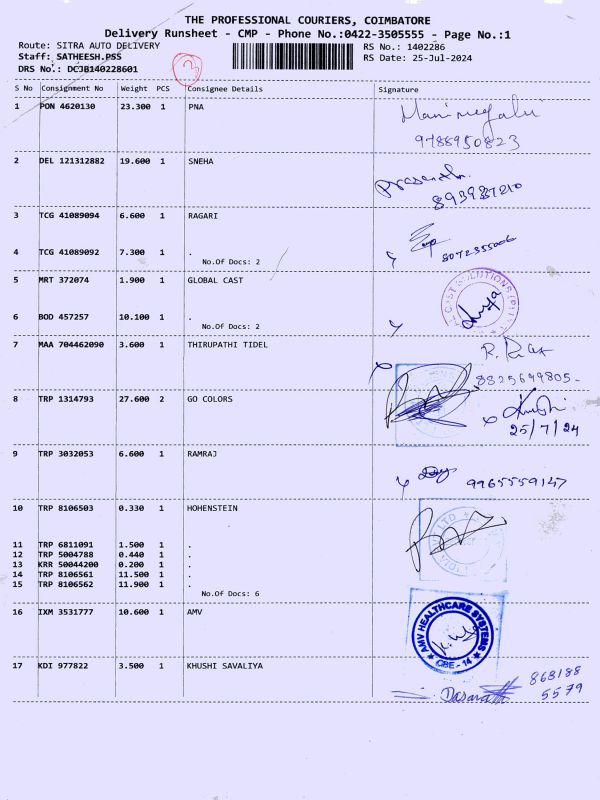 THE PROFESSIONAL COURIERS, COIMBATORE
Delivery Runsheet - CMP - Phone No.:0422-3505555 - Page No.:1
Route: SITRA AUTO DELIVERY
RS No.: 1402286
Staff: SATHEESH.PSS
RS Date: 25-Jul-2024
DRS No.: DCJB140228601
3
S No Consignment No Weight PCS Consignee Details Signature
1 PON 4620130 23.300 1 PNA
9788950823
2 DEL 121312882 19.600 1 SNEHA
3 TCG 41089094 6.600 1 RAGARI
8072355006
4 TCG 41089092 7.300 1 .
No.Of Docs: 2
5 MRT 372074 1.900 1 GLOBAL CAST
6 BOD 457257 10.100 1 .
No.Of Docs: 2
7 MAA 704462090 3.600 1 THIRUPATHI TIDEL
8825699805-
8 TRP 1314793 27.600 2 GO COLORS
25/7/24
9 TRP 3032053 6.600 1 RAMRAJ
9965559147
10 TRP 8106503 0.330 1 HOHENSTEIN
11 TRP 6811091 1.500 1 .
12 TRP 5004788 0.440 1 .
13 KRR 50044200 0.200 1 .
14 TRP 8106561 11.500 1 .
15 TRP 8106562 11.900 1 .
No.Of Docs: 6
16 IXM 3531777 10.600 1 AMV
AMV HEALTHCARE SYSTEMS
CBE - 14
17 KDI 977822 3.500 1 KHUSHI SAVALIYA
868188
5579